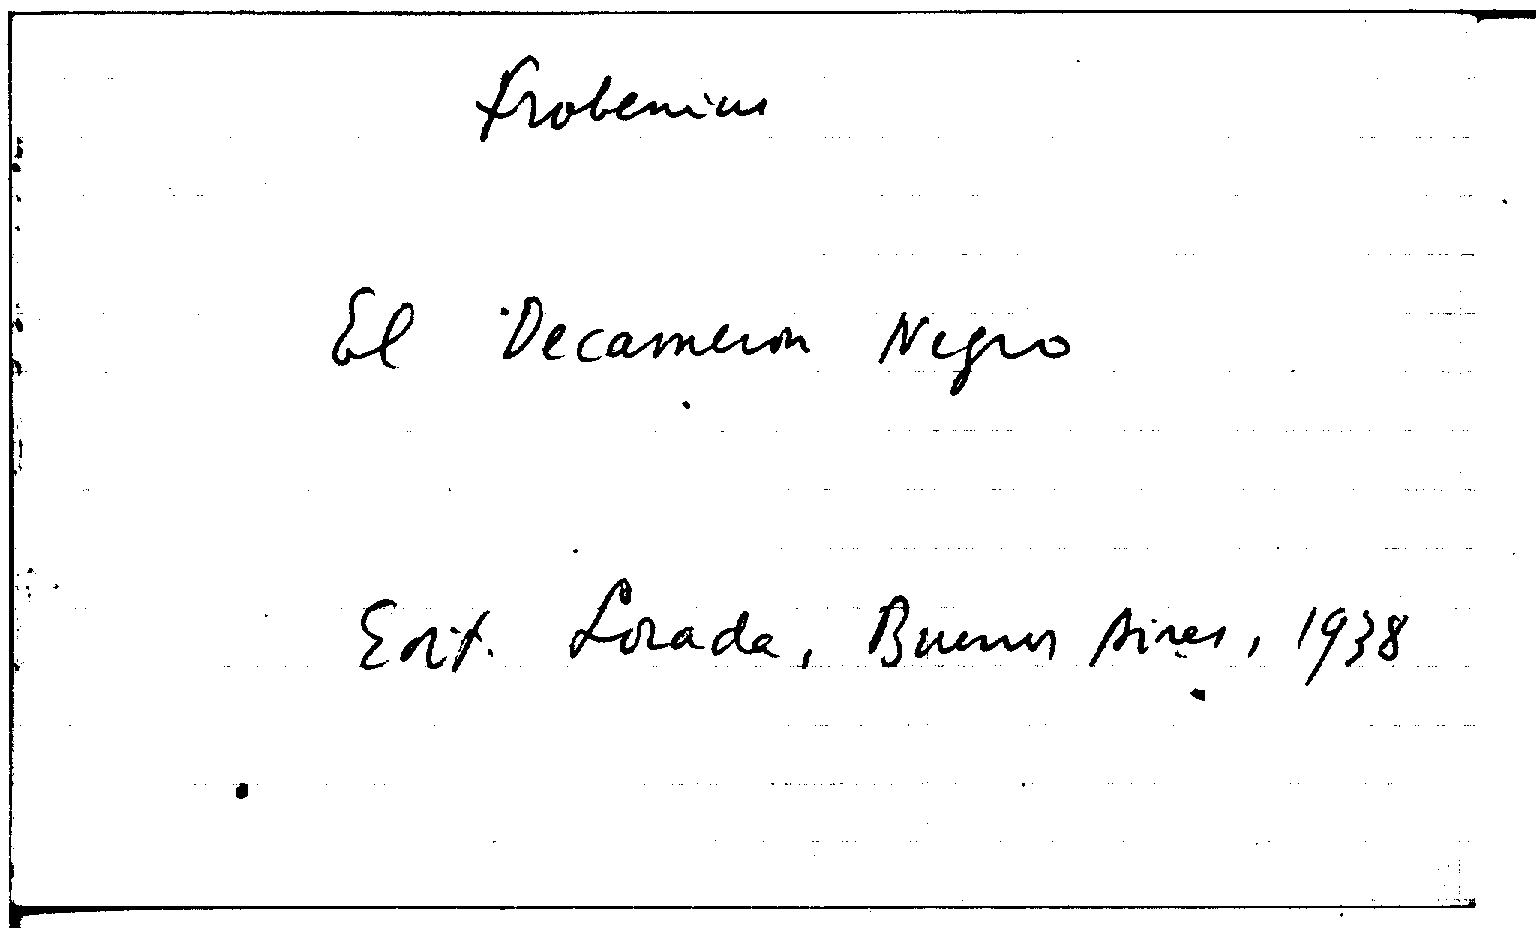 Frobenius
El Decameron Negro
Edit. Losada, Buenos Aires, 1938